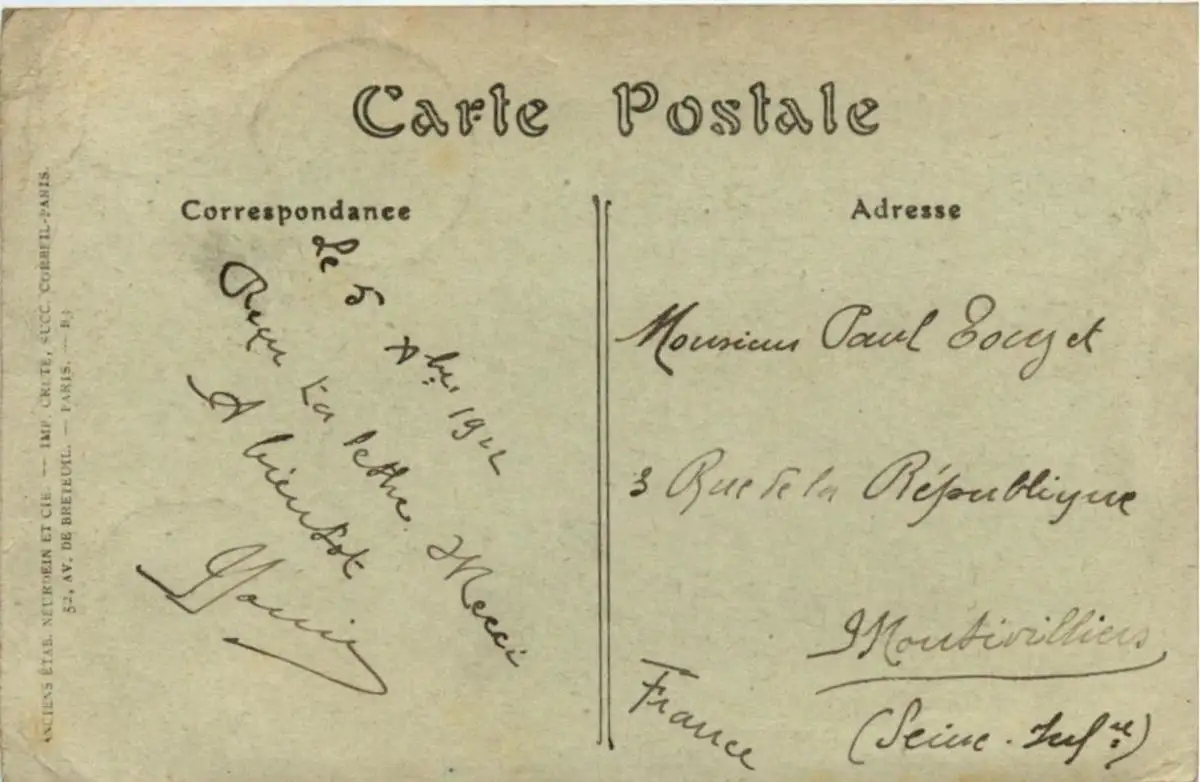 Carte Postale
Correspondance
Le 5 Xbre 1922
Reçu ta lettre. Merci
A bientôt
Adresse
Monsieur Paul Touzet
3 Rue de la République
Montivilliers
(Seine-Infre)
France
ANCIENS ÉTAB. NEURDEIN ET CIE. — IMP. CRÉTÉ, SUCC. CORBEIL-PARIS.
52, AV. DE BRETEUIL. — PARIS. —